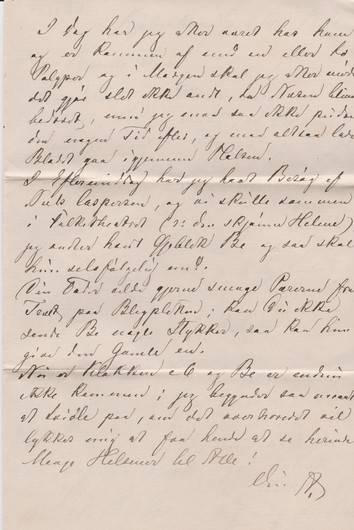 I Dag har jeg atter været hos ham
og er kommen af med en eller to
Polyper og i Morgen skal jeg atter
det gjør slet ikke ondt, da Næsen bliver
bedøvet, men jeg maa saa ikke pudse
den nogen Tid efter, og maa altsaa lade
Blodet gaa igjennem Halsen.
I Eftermiddag har jeg havt Besøg af
Niels Caspersen, og vi skulle sammen
i Folketheatret (ɔ: den skjønne Helene)
jeg Be og saa skal
hun selvfølgelig med.
Din Fader vilde gjerne smage Pærerne fra
Træet paa Blegpletten; kan Du ikke
sende Be nogle Stykker, saa kan hun
give den Gamle en.
Nu er Klokken 6 og Be er endnu
ikke kommen; jeg begynder saa
at tvivle paa, om det overhovedet vil
lykkes mig at faa hende at se herinde
Mange Hilsener til Alle!
Din